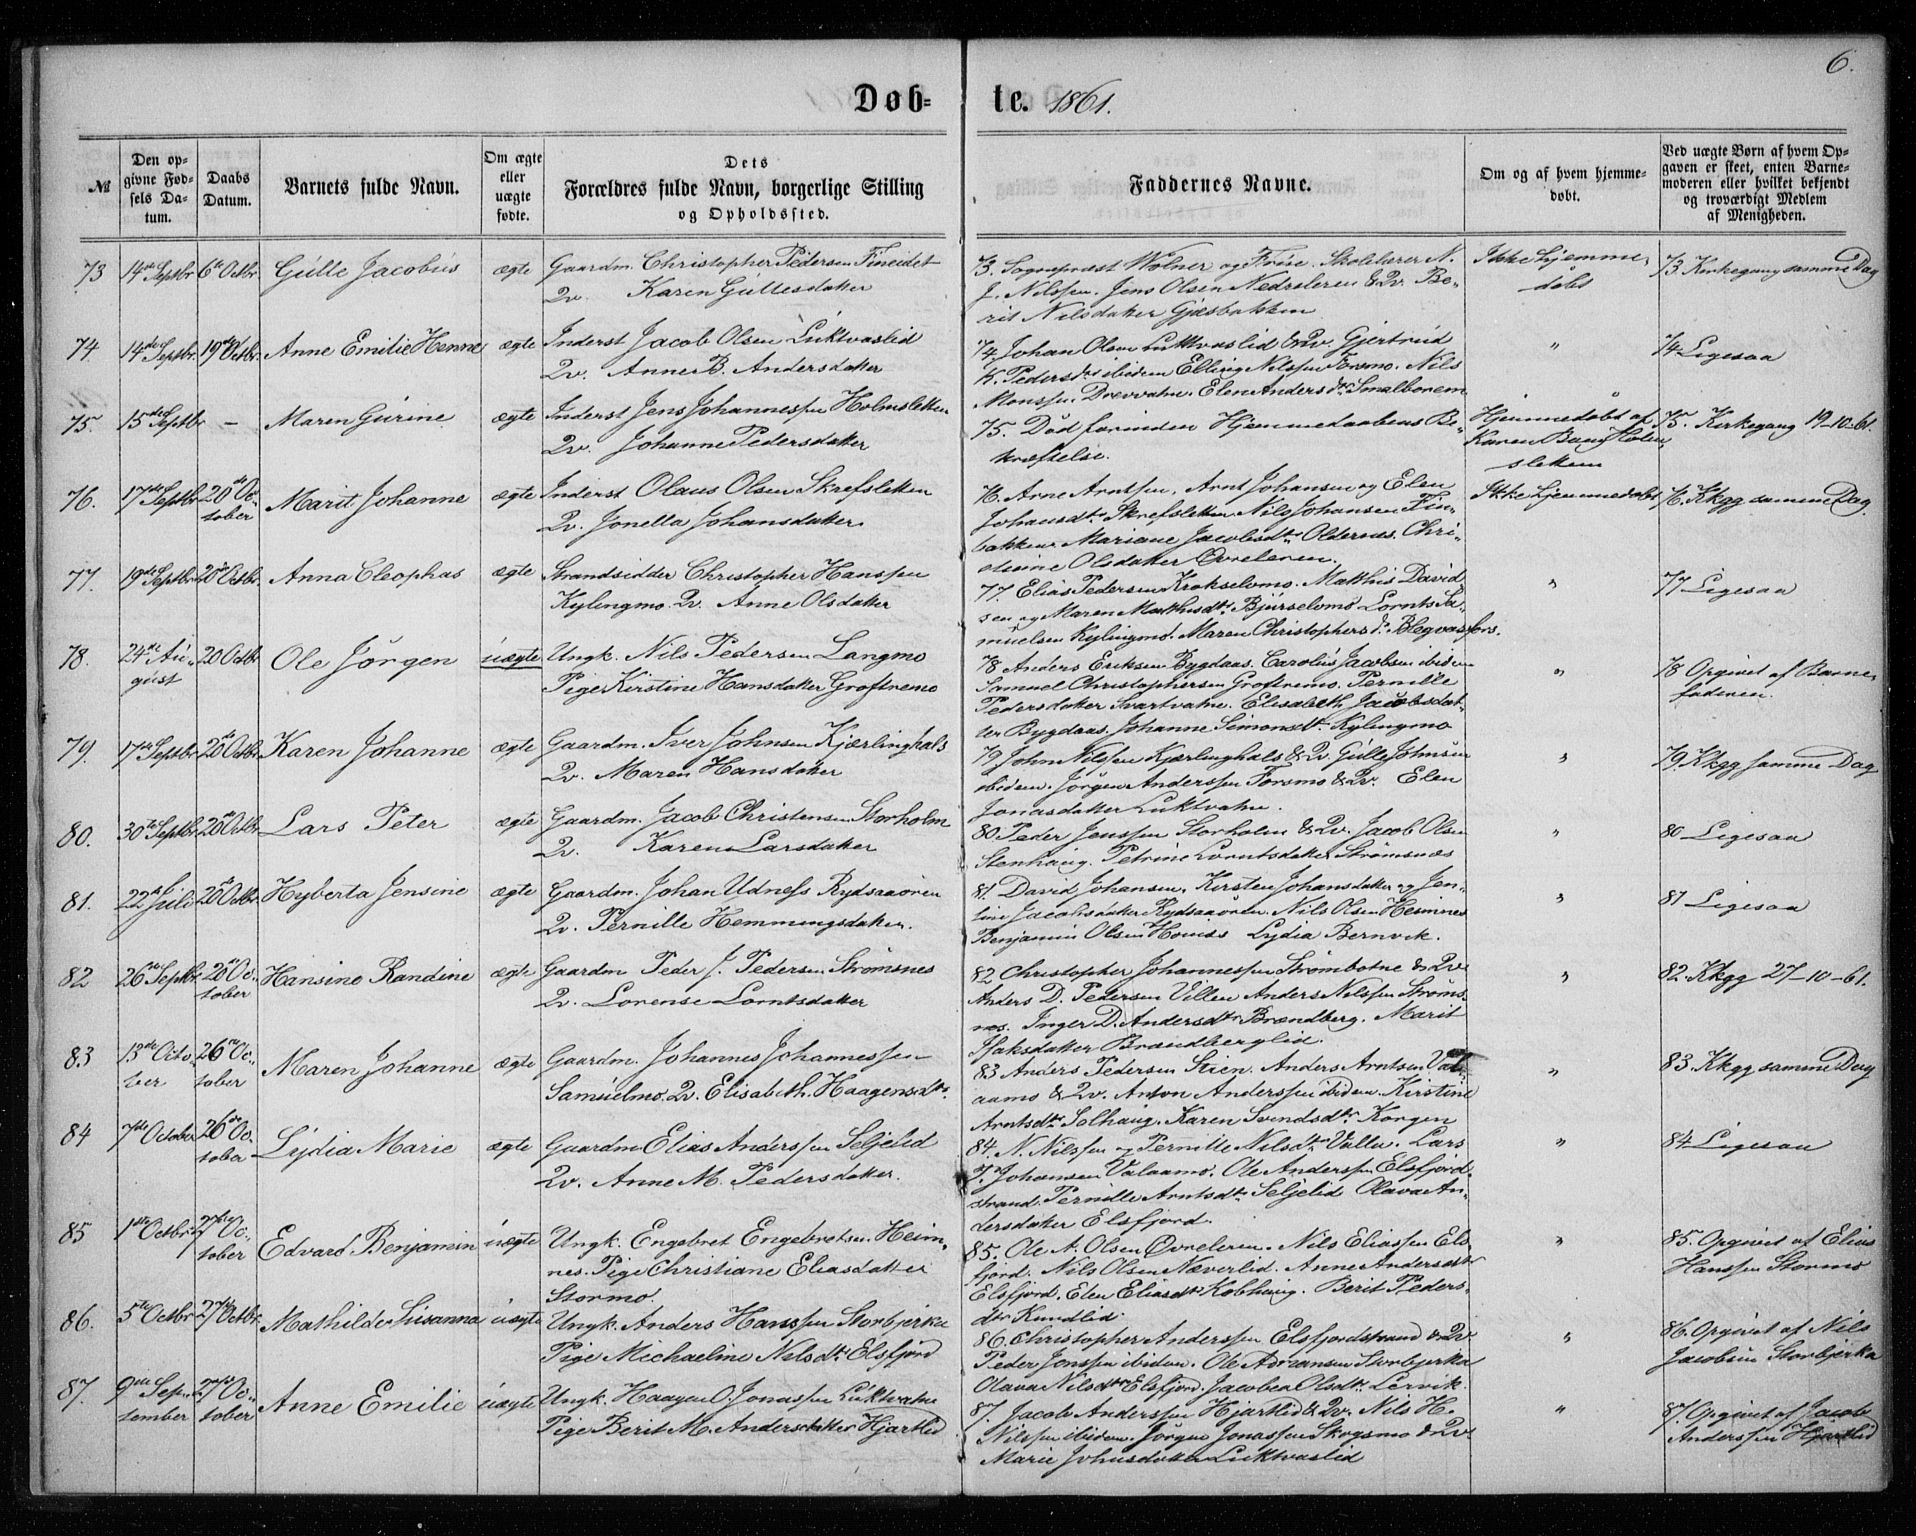 6.
Døb-
te. 1861.
№
Den op-
givne Fød-
sels Da-
tum.
Daabs
Datum.
Barnets fulde Navn.
Om ægte
eller
uægte
fødte.
Dets
Forældres fulde Navn, borgerlige Stilling
og Opholdssted.
Faddernes Navne.
Om og af hvem hjemme-
døbt.
Ved uægte Børn af hvem Op-
gaven er skeet, enten Barne-
moderen eller hvilket bekjendt
og troværdigt Medlem
af Menigheden.
73 14de Septbr 6te Octbr Gülle Jacobüs ægte Gaardm. Christopher Pedersen Fineidet
Qv. Karen Güllesdatter
73. Sognepræst Wolner og Früe. Skolelærer N.
J. Nilssen. Jens Olsen Nedreleren & Qv. Be-
rit Nilsdatter Gjæsbakken
Ikke hjemme-
døbt
73. Kirkegang samme Dag
74 14de Septbr 19de Octbr Anne Emilie Hanna ægte Inderst Jacob Olsen Lüktvaslid
Qv. Anne B. Andersdatter
74. Johan Olsen Luktvaslid & Qv. Gjertrüd
K. Pedersdt ibidem Elling Nilssen Forsmo. Nils
Monssen Drevvatne. Elen Andersdtr Smalborem
"
74 Ligesaa
75. 15de Septbr – Maren Gürine ægte Inderst Jens Johannessen Holmsletten
Qv. Johanne Pedersdatter
75. Død forinden Hjemmedaabens Be-
kræftelse.
Hjemmedøbt af
Karen Baug Holm-
sletten
75. Kirkegang 19-10-61.
76. 17de Septbr 20de Oc-
tober Marit Johanne ægte Inderst Olaus Olsen Skrefsletten
Qv. Jonella Johansdatter
76. Arne Arntsen, Arnt Johansen og Elen
Johansdtr Skrefsletten Nils Johansen Fin-
bakken Mariane Jacobsdtr Oldernes. Chri-
stine Olsdatter Øvreleren.
Ikke hjemmedøbt
76. Kkgg samme Dag.
77. 19de Septbr 20de Octbr. Anna Cleophas ægte Strandsidder Christopher Hanssen
Kylingmo. Qv. Anne Olsdatter
77 Elias Pedersen Krokselvmo. Matthis David-
sen og Maren Matthisdtr Bjürselvmo Lornts Sa-
muelsen Kylingmo. Maren Christophersdr. Blegvasfors.
"
77 Ligesaa
78. 24de Aü-
gust 20 Octbr Ole Jørgen uægte Ungk. Nils Pedersen Langmo
Pige Kirstine Hansdatter Groftremo
78 Anders Eriksen Bygdaas. Carolüs Jacobsen ibidem
Samuel Christophersen Groftremo. Pernille
Pedersdatter Svartvatne. Elisabeth Jacobsdat-
ter Bygdaas. Johanne Simonsdt. Kylingmo
"
78 Opgivet af Barne-
faderen.
79. 17de Septbr 20de Octbr Karen Johanne ægte Gaardm. Iver Johnsen Kjærlinghals
Qv. Maren Hansdatter
79 John Nilssen Kjærlinghals & Qv. Gülle Johnsen
ibidem. Jørgen Anderssen Forsmo & Qv. Elen
Jonasdatter Luktvatne.
"
79. Kkgg samme Dag
80. 30te Septbr 20de Octbr Lars Peter ægte Gaardm. Jacob Christensen Storholm
Qv. Karen Larsdatter
80 Peder Jenssen Storholm & Qv. Jacob Olsen
Stenhaug. Petrine Lorntsdatter Strømsnæs
"
80 Ligesaa
81. 22de Juli 20de Octbr. Hyberta Jensine ægte Gaardm. Johan Udness Rydsaaøren
Qv. Pernille Hemmingsdatter.
81. David Johansen, Kirsten Johansdatter og Jen-
sine Jacobsdatter Rydsaaøren. Nils Olsen Hesimnes
Benjamin Olsen Lydia Bernvik.
"
81 Ligesaa
82 26de Septbr. 20de Oc-
tober Hansine Randine ægte Gaardm Peder J. Pedersen Strømsnes
Qv. Lorense Lorntsdatter
82 Christopher Johannessen Strømbotne & Qv.
Anders D. Pedersen Villen Anders Nilssen Strøms-
nes. Inger D. Andersdtr Brændberg. Marit
Isaksdatter Brændberglien.
"
82. Kkgg 27-10-61.
83 13de Octo-
ber 26de Oc-
tober Maren Johanne ægte Gaardm. Johannes Johannessen
Samüelmo. Qv. Elisabeth Haagensdtr.
83 Anders Pedersen Steien. Anders Arntsen Val-
aamo & Qv. Anton Anderssen ibidem Kirstine
Arntsdtr Solhaug. Karen Svendsdtr Korgen
"
83. Kkgg samme Dag
84 7de October 26de Oc-
tober Lydia Marie ægte Gaardm Elias Anderssen Seljelid
Qv. Anne M. Pedersdatter.
84. N. Nilssen og Pernille Nilsdtr Valla. Lars
J. Johansen Valaamo. Ole Anderssen Elsfjord-
strand. Pernille Arntsdtr Seljelid Olava An-
dersdatter Elsfjord.
"
84 Ligesaa
85 1ste Octbr 27de Oc-
tober Edvard Benjamin uægte Ungk. Engebret Engebretsen Heim-
nes. Pige Christiane Eliasdatter
Stormo.
85. Ole A. Olsen Øvreleren. Nils Eliassen Els-
fjord. Nils Olsen Næverlid. Anne Andersdtr
Elsfjord. Elen Eliasdtr Kobhaug. Berit Peders-
dtr Kundlid
"
85. Opgivet af Elias
Hanssen Stormo
86. 5te Octbr 27de Octbr. Mathilde Süsanna uægte Ungk. Anders Hanssen Storbjerka
Pige Michaeline Nilsdtr Elsfjord
86. Christopher Anderssen Elsfjordstrand & Qv
Peder Jonssen ibidem. Ole Adriansen Storbjerka
Olava Nilsdtr Elsfjord. Jacobea Olsdtr. Lervik.
"
86. Opgivet af Nils
Jacobsen Storbjerka
87. 9de Sep-
tember 27de Oc-
tober Anne Emilie uægte Ungk. Haagen O. Jonassen Lüktvatne
Pige Berit M. Andersdatter Hjartlid
87. Jacob Anderssen Hjartlid & Qv. Nils H.
Nilssen ibidem. Jørgen Jonassen Skogsmo & Qv
Marie Johnsdatter Luktvaslid
"
87. Opgivet af Jacob
Anderssen Hjartlid